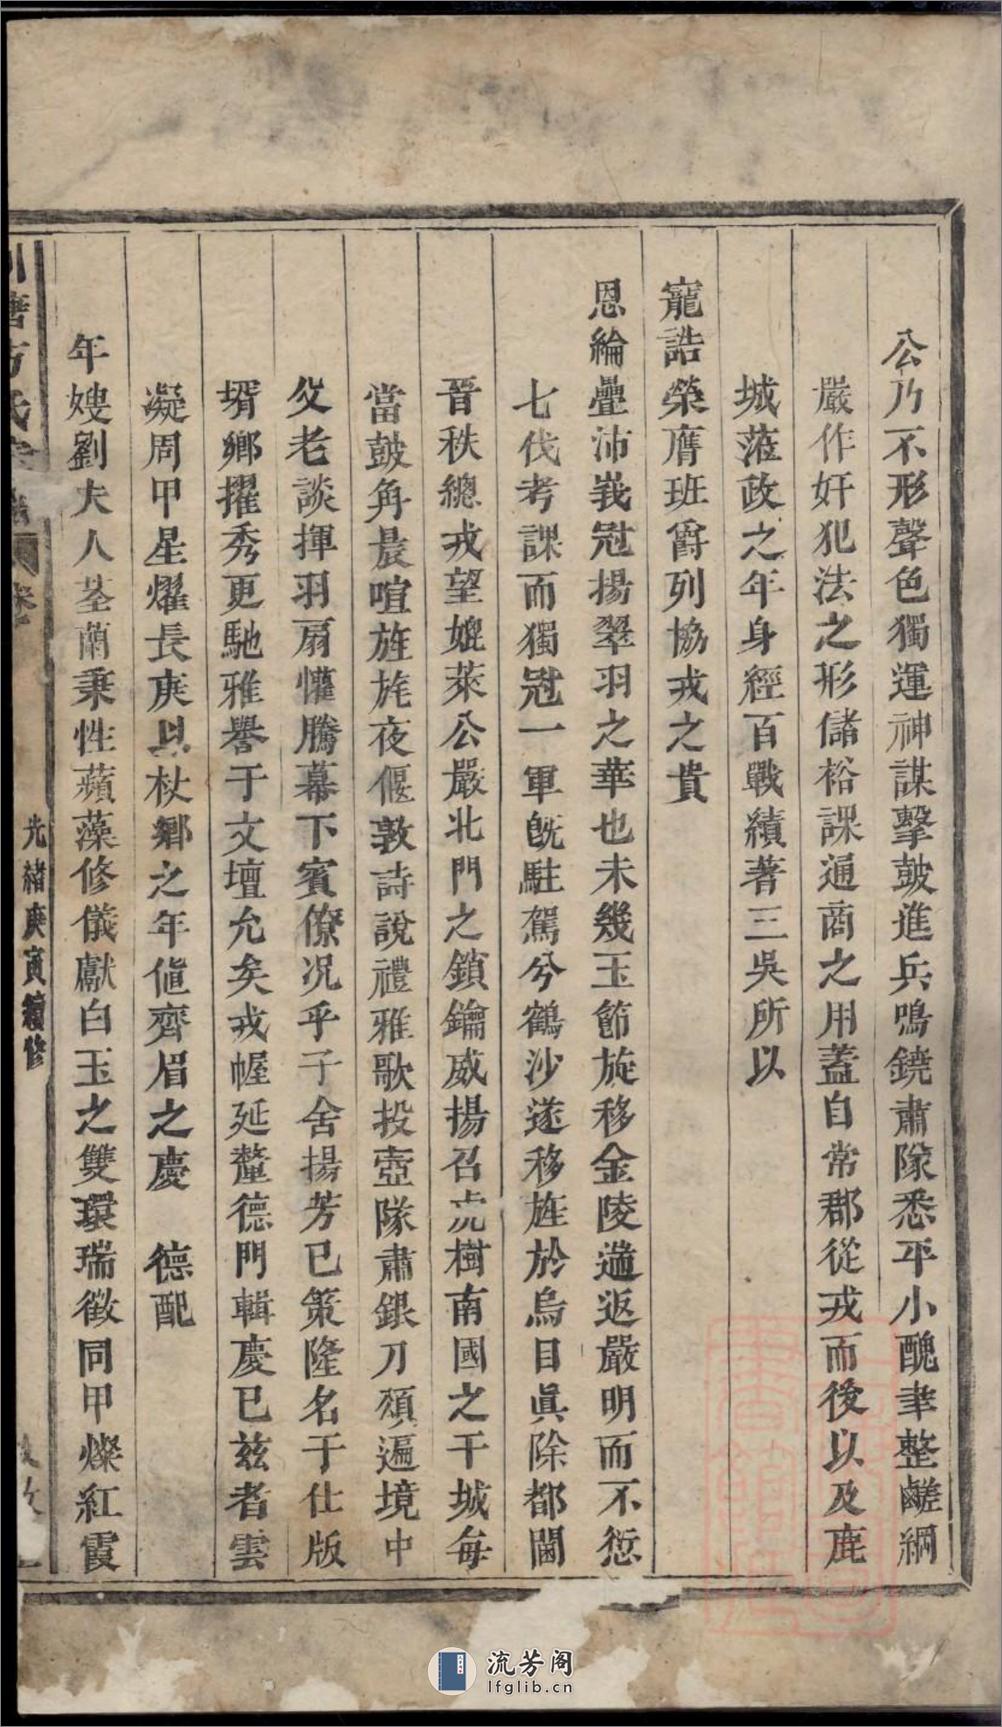 公乃不形聲色獨運神謀擊鼓進兵鳴鐃肅隊悉平小醜聿整鹺綱
嚴作奸犯法之形儲裕課通商之用蓋自常郡從戎而後以及鹿
城蒞政之年身經百戰績著三吳所以
寵誥榮膺班爵列協戎之貴
恩綸疊沛峩冠揚翠羽之華也未幾玉節旋移金陵遄返嚴明而不愆
七伐考課而獨冠一軍旣駐駕兮鶴沙遂移旌於烏目眞除都閫
晉秩總戎望媲萊公嚴北門之鎖鑰威揚召虎樹南國之干城每
當鼓角晨喧旌旄夜偃敦詩說禮雅歌投壺隊肅銀刀頌遍境中
父老談揮羽扇懽騰幕下賓僚况乎子舍揚芳已策隆名于仕版
壻鄉擢秀更馳雅譽于文壇允矣戎幄延釐德門輯慶已兹者雲
凝周甲星燿長庚以杖鄉之年値齊眉之慶 德配
年嫂劉夫人荃蘭秉性蘋藻修儀獻白玉之雙環瑞徵同甲燦紅霞
光緖庚寅續修
流芳阁
lfglib.cn